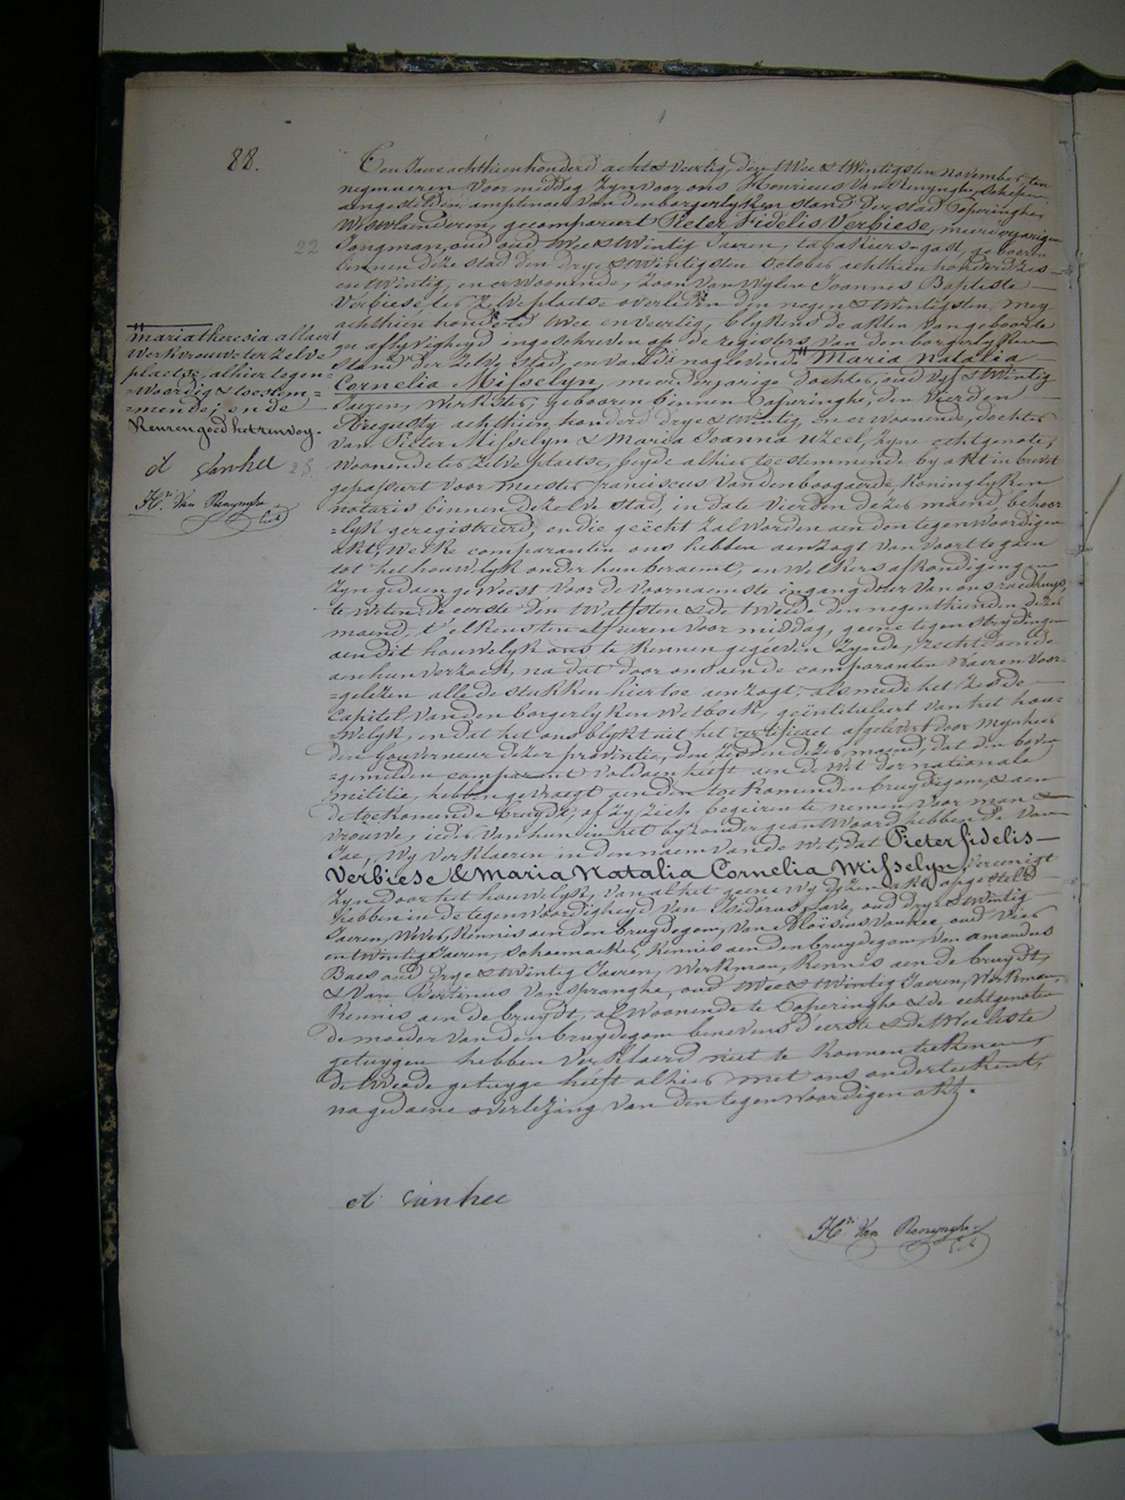 88.
Ten Jaere achthien honderd acht & veertig, den twee & twintigsten november, ten
negen ueren voor middag zyn voor ons Henricus Van Renynghe, schepen,
aengestelden amptenaer van den borgerlyken stand der stad Poperinghe,
Westvlaenderen, gecompareert Pieter Fidelis Verbiese, meerderjarigen
Jongman, oud twee & twintig Jaeren, tabakiers-gast, gebooren
22
binnen deze stad den drye & twintigsten october achthien honderd zes-
en twintig, en er woonende, zoon van wylen Joannes Baptiste
Verbiese, ter zelve plaetse overleden den negen & twintigsten mey
achthien honderd twee en veertig, blykens de akten van geboorte
en aflyvigheyd ingeschreven op de registers van den borgerlyken
stand der zelve stad, en van de nog levende Maria Natalia
Cornelia Misselyn, meerderjarige dochter, oud vyf & twintig
Jaeren, werkster, gebooren binnen Poperinghe, den vierden
Augusty achthien honderd drye & twintig, en er woonende, dochter
van Pieter Misselyn & Maria Joanna Uzeel, zyne echtgenote,
woonende ter zelve plaetse, beyde alhier toestemmende by akt in brevet
gepasseert voor meester franciscus Vandenboogaerde Koninglyken
notaris binnen dezelve stad, in date vierden dezer maend, behoor-
=lyk geregistreerd, en die geëcht zal worden aen den tegenwoordigen
akt; welke comparanten ons hebben aenzogt van voort te gaen
tot het houwelyk onder hun beraemt, en welkers afkondigingen
zyn gedaen geweest voor de voornaemste ingangdeur van ons raedhuys,
te weten: de eerste den twalfsten & de tweede den negenthienden dezer
maend, t'elkens ten elf ueren voor middag, geene tegenstrydingen
aen dit houwelyk ons te kennen gegeven zynde, recht doende
aen hun verzoek, na dat door ons aen de comparanten waeren voor-
=gelezen alle de stukken hier toe aenzogt, als mede het zesde
Capitel van den borgerlyken wetboek, geïntituleert van het hou-
=welyk, en dat het ons blykt uit het certificaet afgelevert door mynheer
den Gouverneur dezer provintie, den zesden dezer maend, dat den boven
=gemelden comparent voldaen heeft aen de wet der nationale
militie, hebben gevraegt aen den toekomenden bruydegom, & aen
de toekomende bruydt, of zy zich begeiren te nemen voor man &
vrouwe, ieder van hun in het byzonder geantwoord hebbende van
Jae, wy verklaeren in den naem van de wet, dat Pieter fidelis
Verbiese & Maria Natalia Cornelia Misselyn, vereenigt
zyn door het houwelyk, van al het geene wy dezen akt opgesteld
hebben in de tegenwoordigheyd van Isidorus Fava, oud drye & twintig
Jaeren, wever, kennis aen den bruydegom, van Aloïsius Vanhee, oud vier
en twintig Jaeren, schoenmaeker, kennis aen den bruydegom, van amandus
Baes oud drye & twintig Jaeren, werkman, kennis aen de bruydt,
& van Bertinus Vanspranghe, oud twee & twintig Jaeren, werkman,
kennis aen de bruydt, al woonende te Poperinghe & de echtgenoten
de moeder van den bruydegom benevens d'eerste & de twee leste
getuygen hebben verklaerd niet te konnen teekenen,
de tweede getuyge heeft alhier met ons onderteekent,
na gedaene overlezing van den tegenwoordigen akt.
maria theresia allaert
werkvrouw ter zelve
plaetse, alhier tegen=
=woordig & toestem=
=mende; ende
keuren goed het renvoy.
A Vanhee
25
H.ri Van Renynghe
A Vanhee
H.ri Van Renynghe